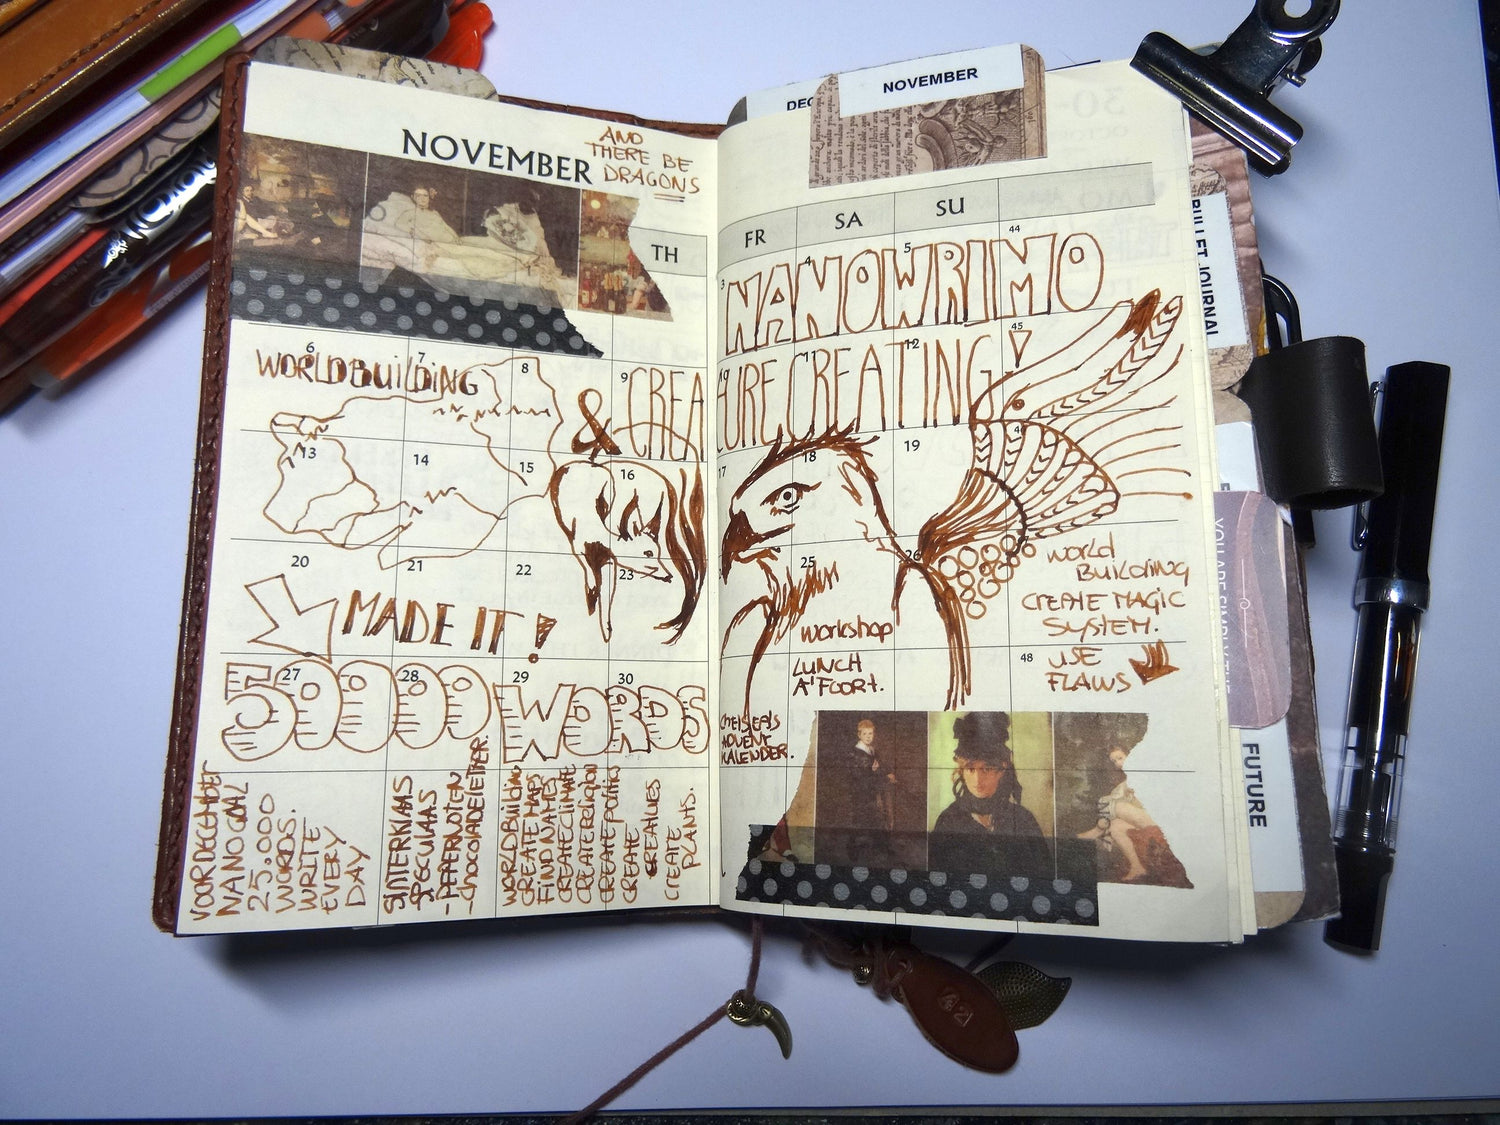 NOVEMBER
AND
THERE BE
DRAGONS
TH
6 7 8 9
WORLDBUILDING
& CREA
13 14 15 16
20 21 22 23
MADE IT!
27 28 29 30
5000 WORDS
VOOR DECEMBER
NANO GOAL
25.000
WORDS.
WRITE
EVERY
DAY
SINTERKLAAS
-SPECULAAS
-PEPERNOTEN
-CHOCOLADELETTER.
WORLDBUILDING
CREATE MAPS
FIND NAMES
CREATE CLIMATE
CREATE RELIGION
CREATE POLITICS
CREATE
CREATUES
CREATE
PLANTS.
DEC
NOVEMBER
FR SA SU
3 4 5 44
NANOWRIMO
10 11 12 45
TURE CREATING!
17 18 19 46
25 26
WORLD
BUILDING
CREATE MAGIC
SYSTEM.
WORKSHOP
LUNCH
A'FOORT.
48
USE
FLAWS
CHELSEA'S
ADVENT
KALENDER.
BULLET JOURNAL
YOU ARE SIMPLY THE
FUTURE
42